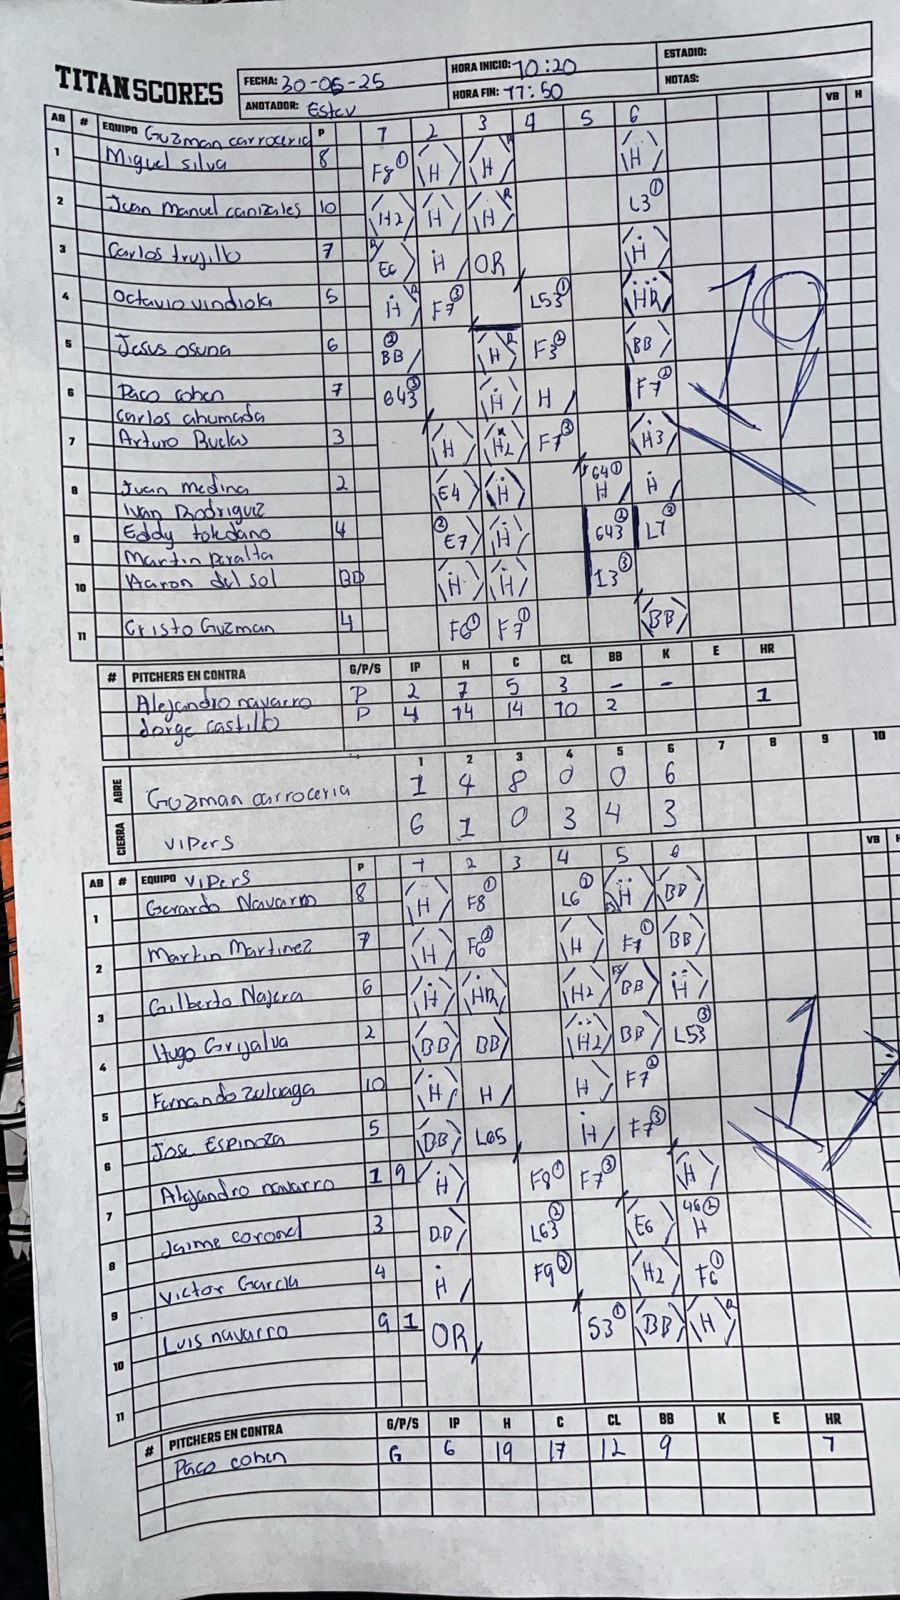 TITAN SCORES
FECHA: 30-05-25 HORA INICIO: 10:20 ESTADIO:
ANOTADOR: Estev HORA FIN: 11:50 NOTAS:
AB # EQUIPO Guzman carroceria P 1 2 3 4 5 6 VB H
1 Miguel silva 8 F8① H H R H
2 Juan Manuel canizales 10 H2 H H R L3①
3 Carlos trujillo 7 R E6 H OR H
4 Octavio vindiola 5 H R F7③ L53① HR
5 Jesus osuna 6 ② BB H R F3② BB
6 Paco cohen 7 643③ H H F7②
Carlos ahumada
7 Arturo Buelas 3 H H2 F7③ H3
8 Juan medina 2 E4 H 64① H H
Ivan Rodriguez
9 Eddy toledano 4 ② E7 H 643② L7③
Martin peralta
10 Aaron del sol BD H H 13③
11 Cristo Guzman 4 F6① F7① BB
19
# PITCHERS EN CONTRA G/P/S IP H C CL BB K E HR
Alejandro navarro P 2 7 5 3 - -
Jorge castillo P 4 14 14 10 2 1
1 2 3 4 5 6 7 8 9 10
ABRE Guzman carroceria 1 4 8 0 0 6
CIERRA vipers 6 1 0 3 4 3
AB # EQUIPO vipers P 1 2 3 4 5 6 VB H
1 Gerardo Navarro 8 H F8① L6② H BB
2 Martin Martinez 7 H F6② H F7① BB
3 Gilberto Najera 6 H HR H2 BB H
4 Hugo Grijalva 2 BB BB H2 BB L53③
5 Fernando zuluaga 10 H H H F7②
6 Jose Espinoza 5 BB L65 H F7③
7 Alejandro navarro 1 9 H F8① F7③ H
8 Jaime coronel 3 BB L63② E6 46② H
9 victor Garcia 4 H F9③ H2 F6①
10 Luis navarro 9 1 OR 53① BB H R
11
17
# PITCHERS EN CONTRA G/P/S IP H C CL BB K E HR
Paco cohen G 6 19 17 12 9 1